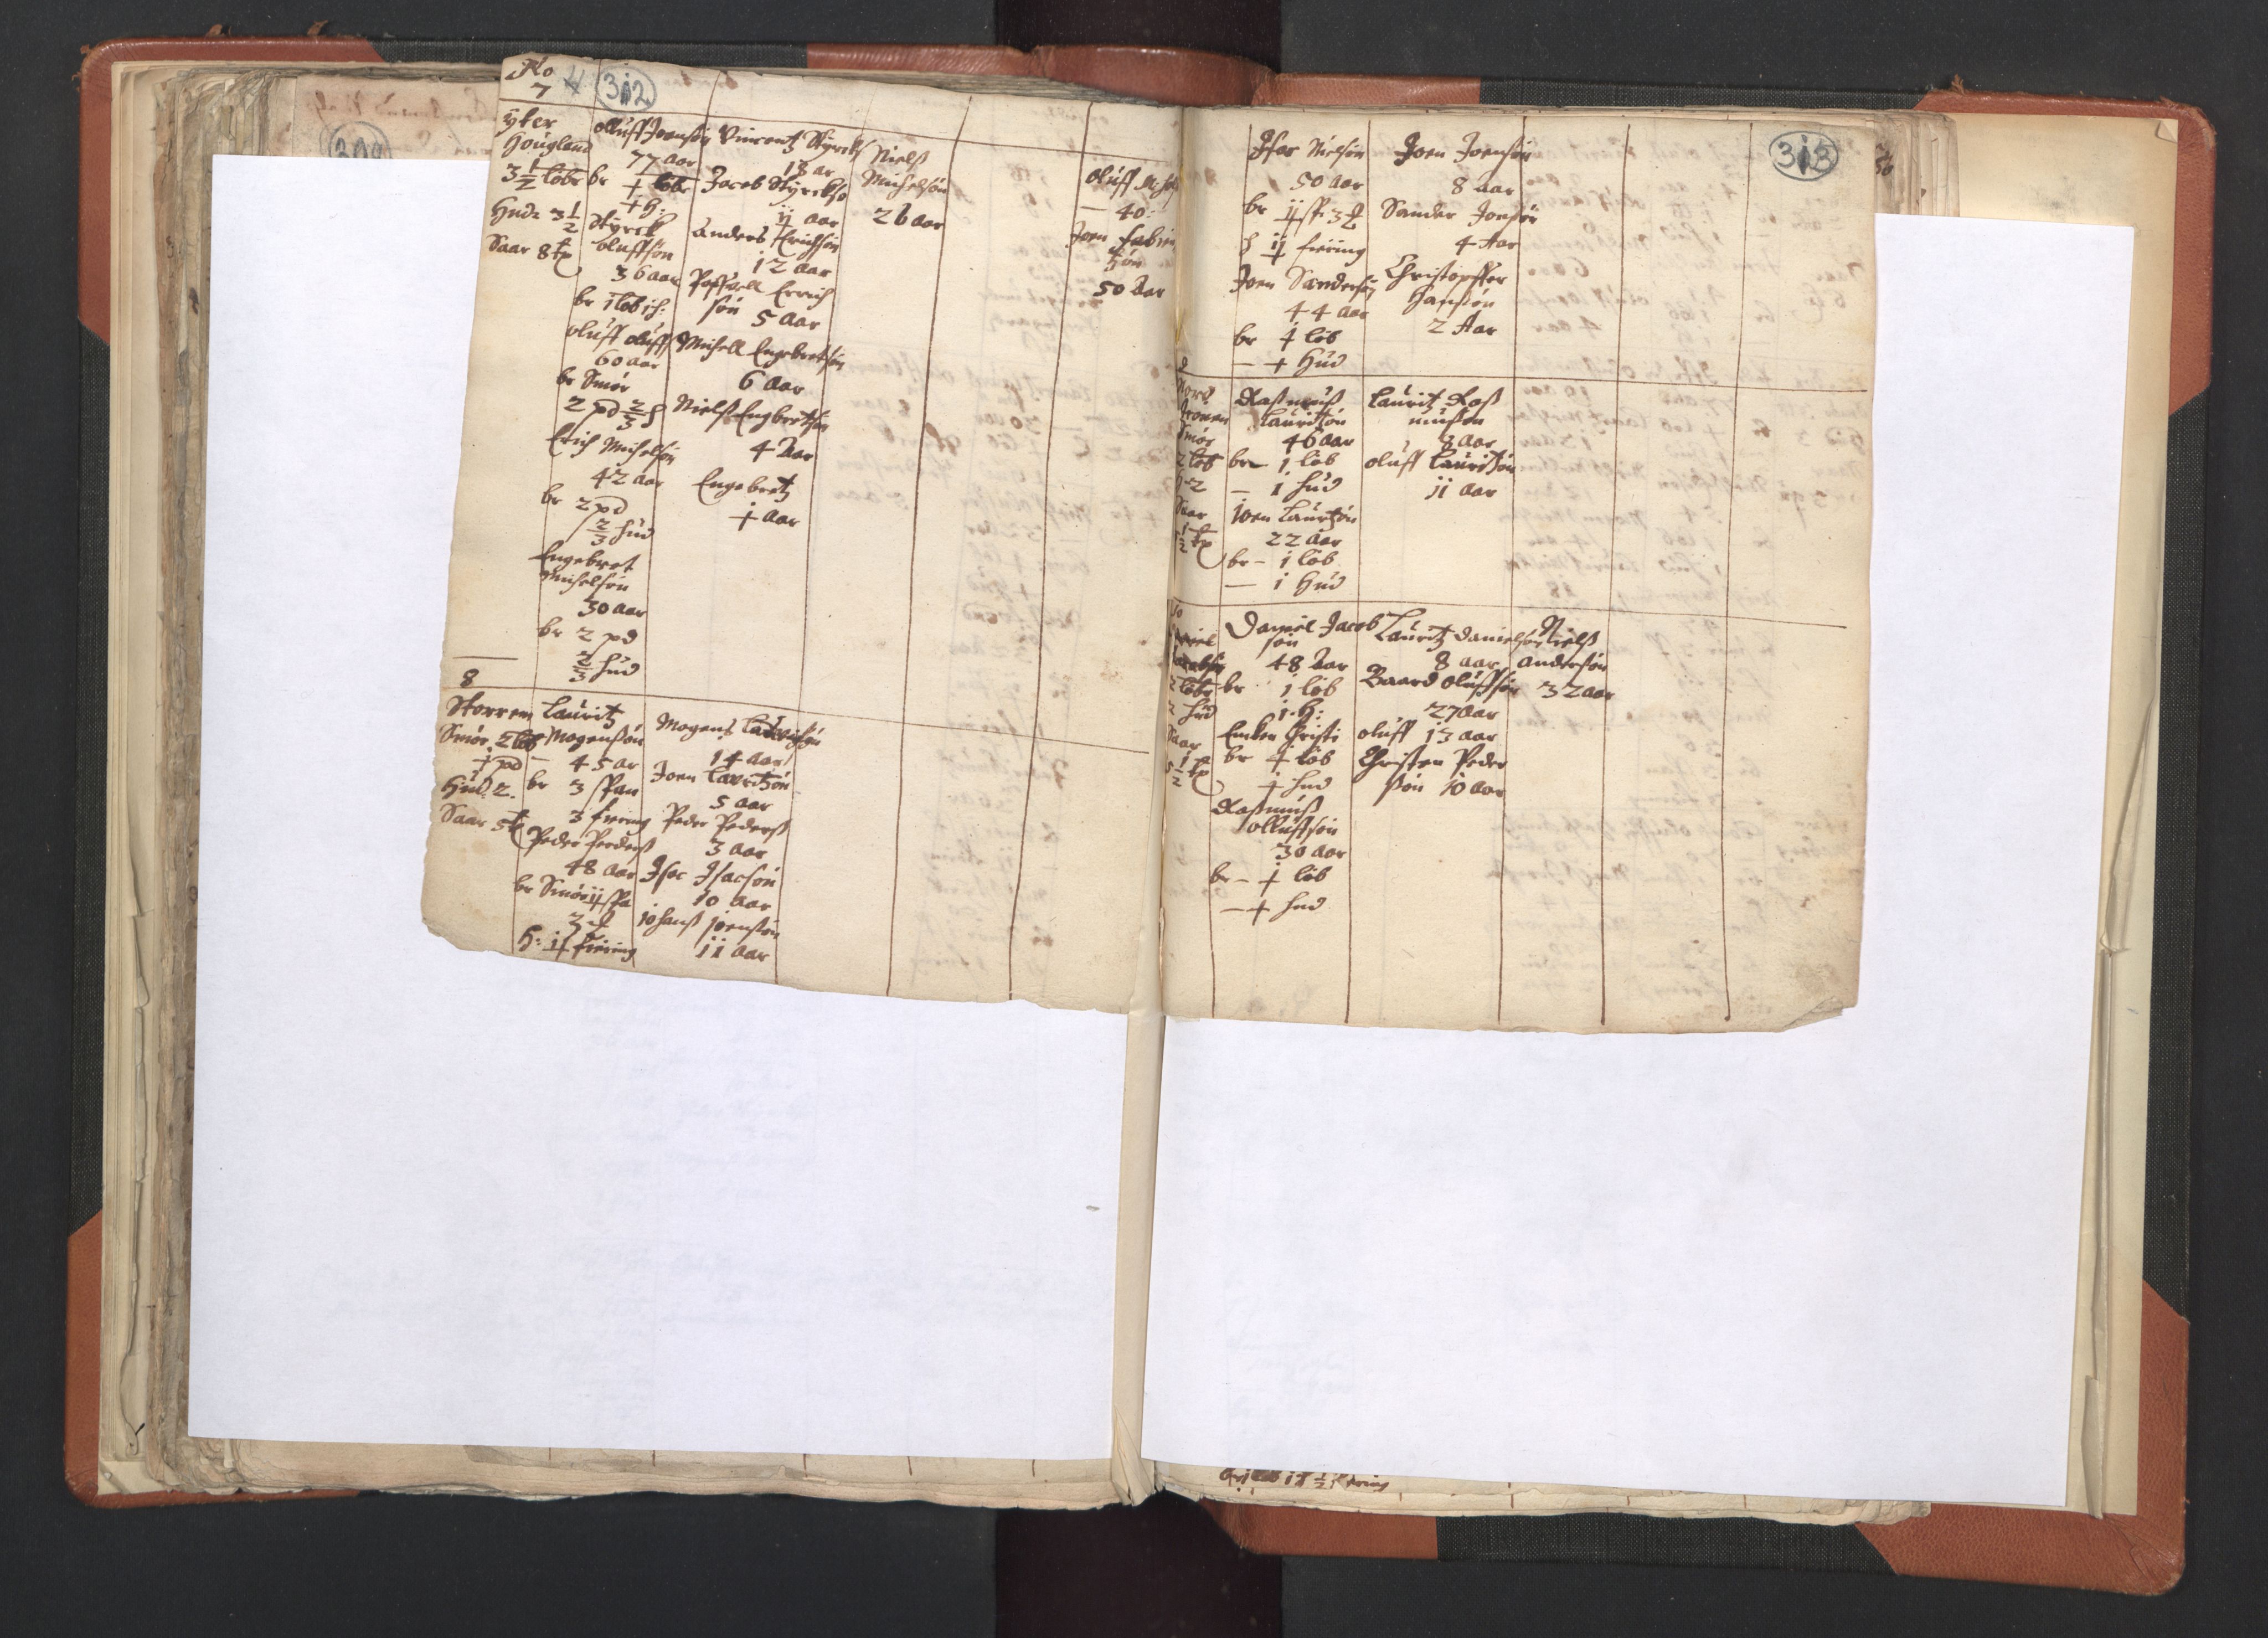 No
7
312
ÿter
Hougland
3½ løbe
Hud: 3½
Saar 8 tp
olluff Joensøn
77 aar
br ½ løb
½ H:
Styrck
oluffsøn
36 aar
br 1 løb 1 h:
oluff oluffs
60 aar
br Smør
2 pd ⅔ h
Erich Michelsøn
42 aar
br 2 pd
⅔ hud
Engebret
Michelsøn
30 aar
br 2 pd
⅔ hud
Vincentz Styrcks
18 ar
Jacob Styrckso
ij aar
Anders Erichsøn
12 aar
Poffuell Erich
søn 5 aar
Michell Engebretsøn
6 aar
Niels Engbretsøn
4 Aar
Engebretz
½ aar
Niels
Michelsøn
26 aar
oluff
40
Joen
søn
50 aar
8
Storrem
Smør 2 løb
½ pd
Hud 2.
Saar 5 tp
Lauritz
Mogensøn
45 ar
br 3 span
3 fiering
Peder Peders
48 aar
br Smør ij spa
3
H: fiering
Mogens Lauritzsøn
14 aar
Joen Lauritzøn
5 aar
Peder Peders
3 aar
Isac Isacsøn
10 aar
Johans joensøn
ii aar
313
Isac Nielsøn
50 aar
br
h fiering
Joen Sandersøn
44 aar
br ½ løb
— ½ Hud
Joen Joensøn
8 aar
Sander Jonsøn
4 Aar
Christopffer
Hansøn
2 Aar
Smør
2 løb
2
Saar
½ tp
Rasmus
Lauritsøn
46 aar
br – 1 løb
— 1 hud
Joen Lauritzøn
22 aar
br – 1 løb
— 1 Hud
Lauritz Ras
musøn
3 aar
oluff Lauritzøn
ii aar
2 løbe
2 hud
Saar
5½ tp
Daniel Jacob
søn
48 aar
br 1 løb
1. H:
Encken Christi
br ½ løb
½ hud
Rasmus
olluffsøn
30 aar
br – ½ løb
— ½ hud
Lauritz danielsøn
8 aar
Baard oluffsøn
27 aar
oluff 13 aar
Christen Peder
søn 10 aar
Niels
Andersøn
32 aar